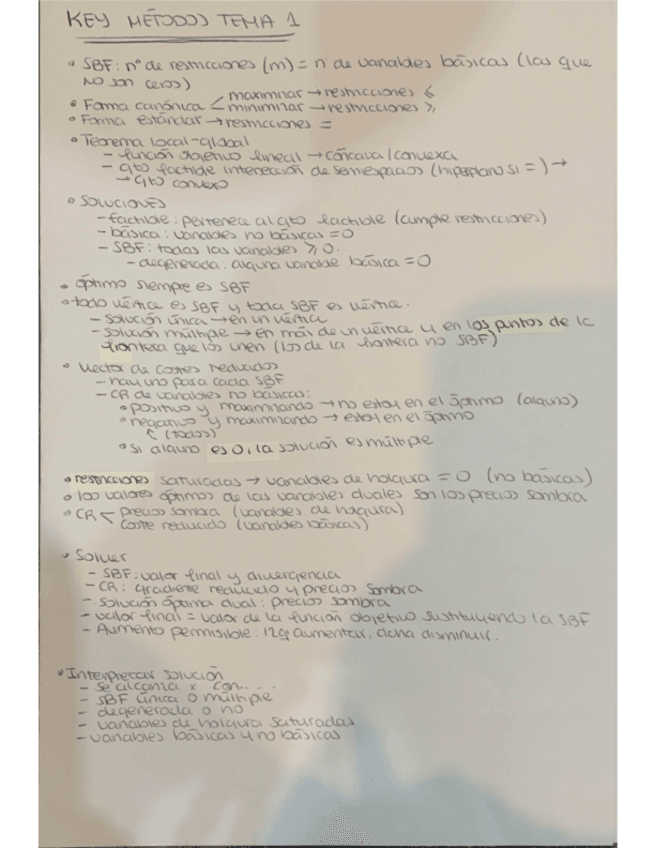 KEY MÉTODOS TEMA 1
• SBF: nº de restricciones (m) = n de variables básicas (las que
no son ceros)
• Forma canónica < maximinar → restricciones ≤
minimiñar → restricciones ≥
• Forma estándar → restricciones =
• Teorema local-global
- función objetivo lineal → cóncava/convexa
- cjto factible intersección de semiespacios (hiperplano si =) →
→ cjto convexo
• SOLUCIONES
- factible: pertenece al cjto factible (cumple restricciones)
- básica: variables no básicas = 0
- SBF: todas las variables ≥ 0.
- degenerada: alguna variable básica = 0
• óptimo siempre es SBF
• todo vértice es SBF y toda SBF es vértice.
- solución única → en un vértice
- solución múltiple → en más de un vértice y en los puntos de la
frontera que los unen (los de la frontera no SBF)
• Vector de costes reducidos
- hay uno para cada SBF
- CR de variables no básicas:
• positivo y maximinando → no estoy en el óptimo (alguno)
• negativo y maximinando → estoy en el óptimo
(todos)
• Si alguno es 0, la solución es múltiple
• restricciones saturadas → variables de holgura = 0 (no básicas)
• los valores óptimos de las variables duales son los precios sombra
• CR < precios sombra (variables de holgura)
coste reducido (variables básicas)
• Solver
- SBF: valor final y divergencia
- CR: gradiente reducido y precios sombra
- solución óptima dual: precios sombra
- valor final = valor de la función objetivo sustituyendo la SBF
- Aumento permisible: izq aumentar, dcha disminuir.
• Interpretar solución
- se alcanza x con....
- SBF única o múltiple
- degenerada o no
- variables de holgura saturadas
- variables básicas y no básicas